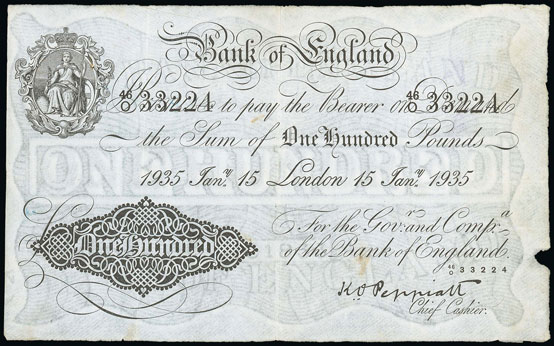 Bank of England
46/O 33224 46/O 33224
to pay the Bearer on
the Sum of One Hundred Pounds
1935 Jan.y 15 London 15 Jan.y 1935
For the Gov.r and Comp.a
of the Bank of England.
One Hundred
46/O 33224
K.O. Peppiatt
Chief Cashier.